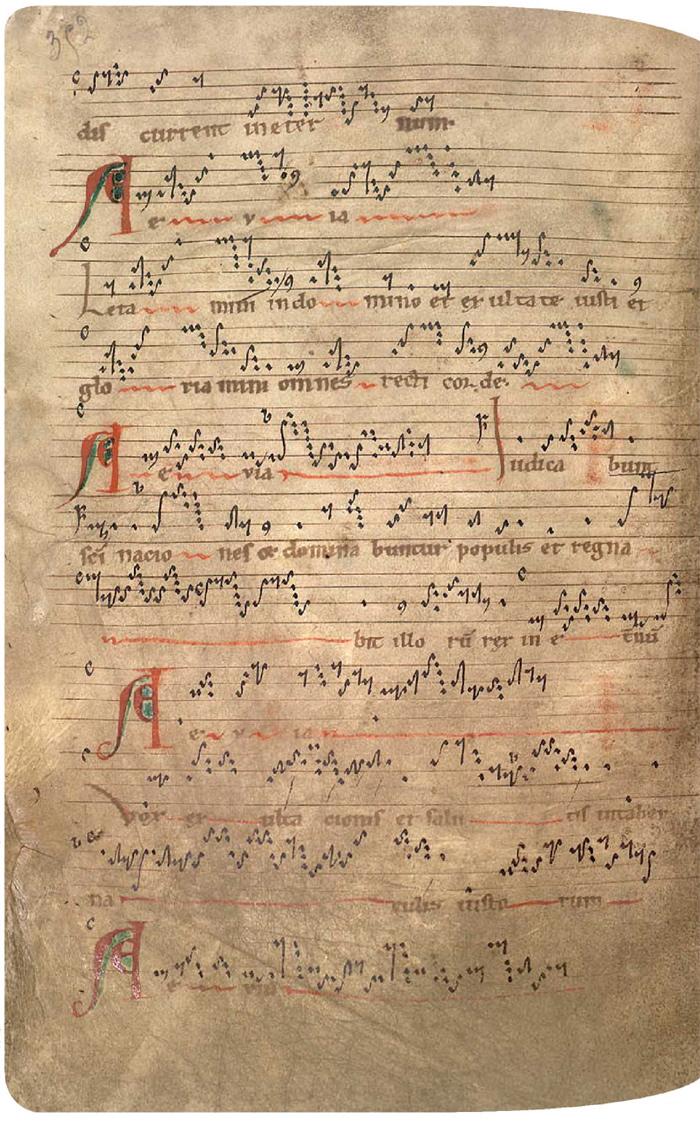 352
dis current in eter num.
A e v ia
Leta mini in do mino et exultate iusti et
glo ria mini omnes recti corde.
A e via Iudica bunt
sci nacio nes et domina buntur populis et regna
bit illo rū rex in e t̄nū
A e v ia
Vox ex ulta cionis et salu tis in taber
na culis iusto rum
A e via